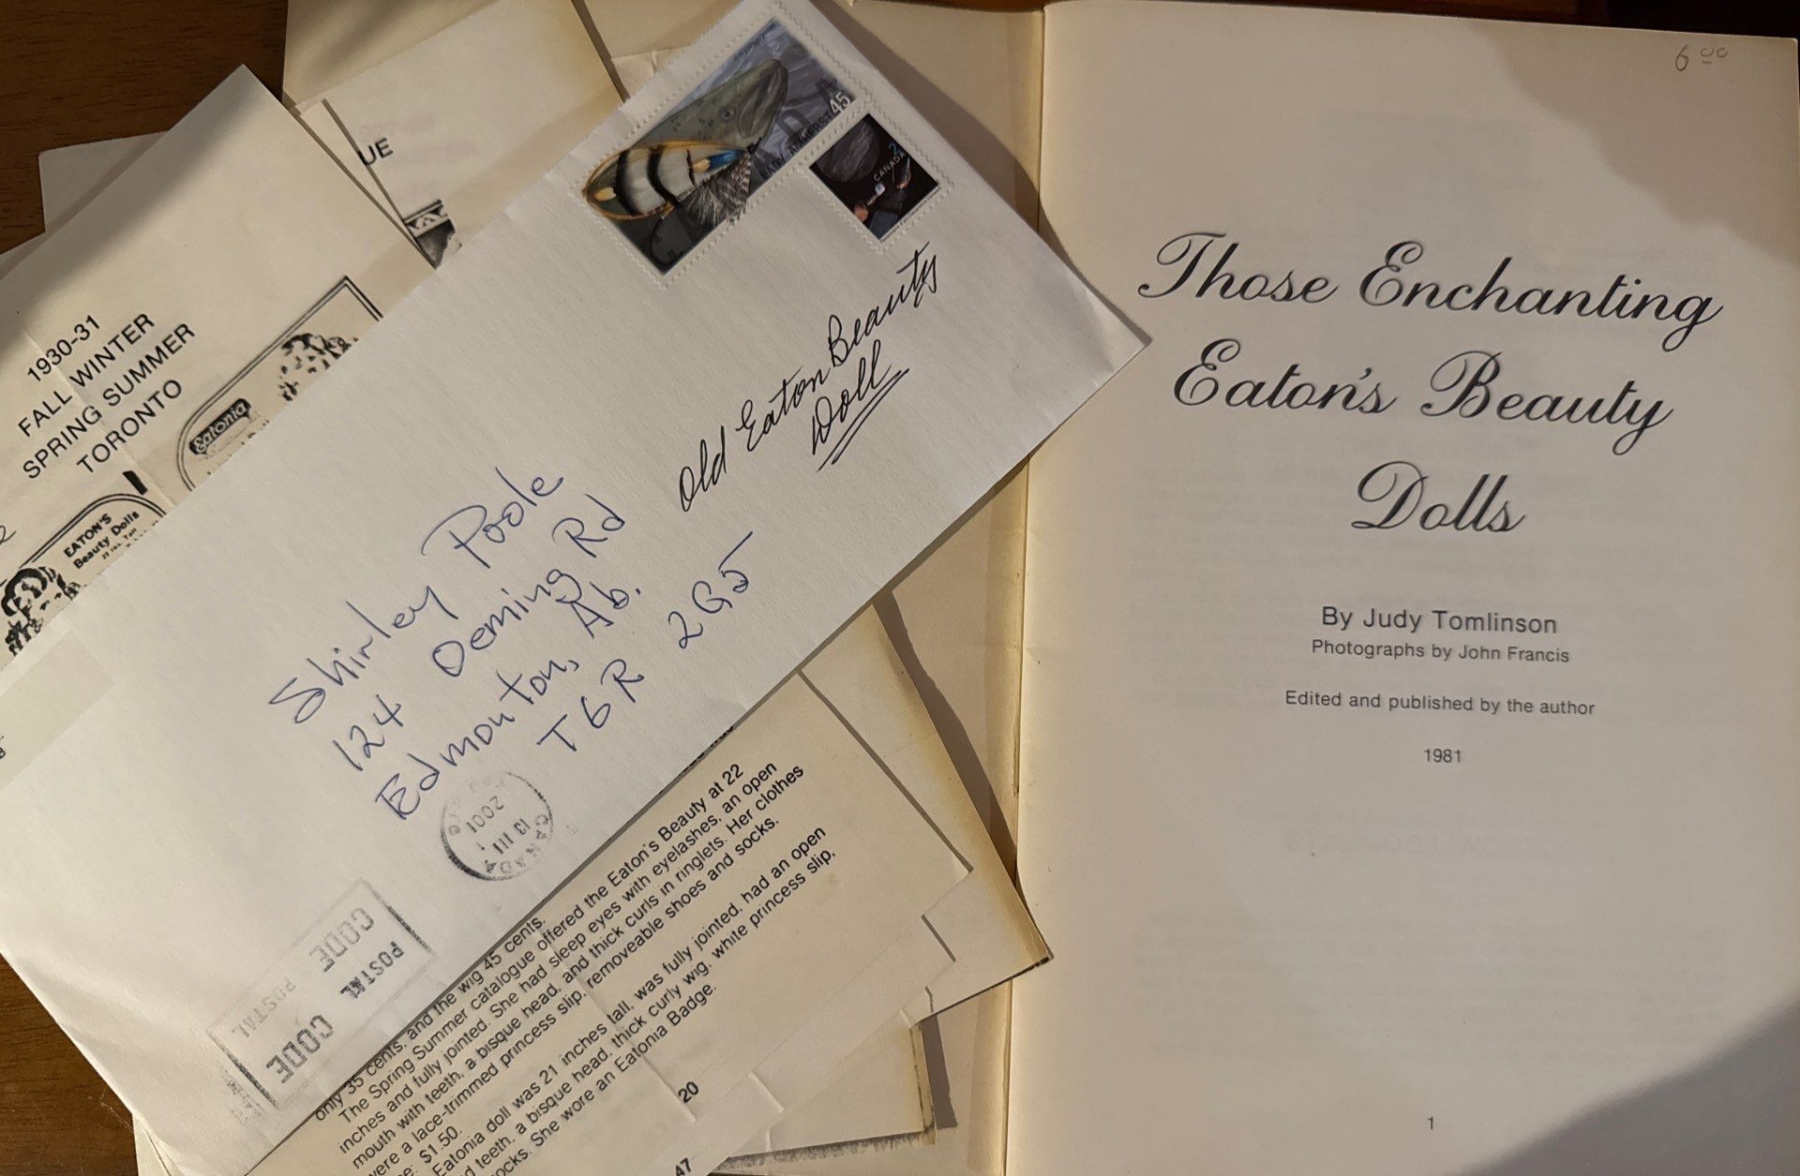 6 00
Those Enchanting
Eaton's Beauty
Dolls
By Judy Tomlinson
Photographs by John Francis
Edited and published by the author
1981
1
45
CANADA
Old Eaton Beauty
Doll
Shirley Poole
124 Oeming Rd
Edmonton, Ab.
T6R 2G5
CANADA
13 III
2001
POSTAL
CODE
POSTAL
CODE
UE
1930-31
FALL WINTER
SPRING SUMMER
TORONTO
Eatonia
EATON'S
Beauty Dolls
only 35 cents, and the wig 45 cents.
The Spring Summer catalogue offered the Eaton's Beauty at 22
inches and fully jointed. She had sleep eyes with eyelashes, an open
mouth with teeth, a bisque head, and thick curls in ringlets. Her clothes
were a lace-trimmed princess slip, removeable shoes and socks.
$1.50.
Eatonia doll was 21 inches tall, was fully jointed, had an open
teeth, a bisque head, thick curly wig, white princess slip,
socks. She wore an Eatonia Badge.
20
47